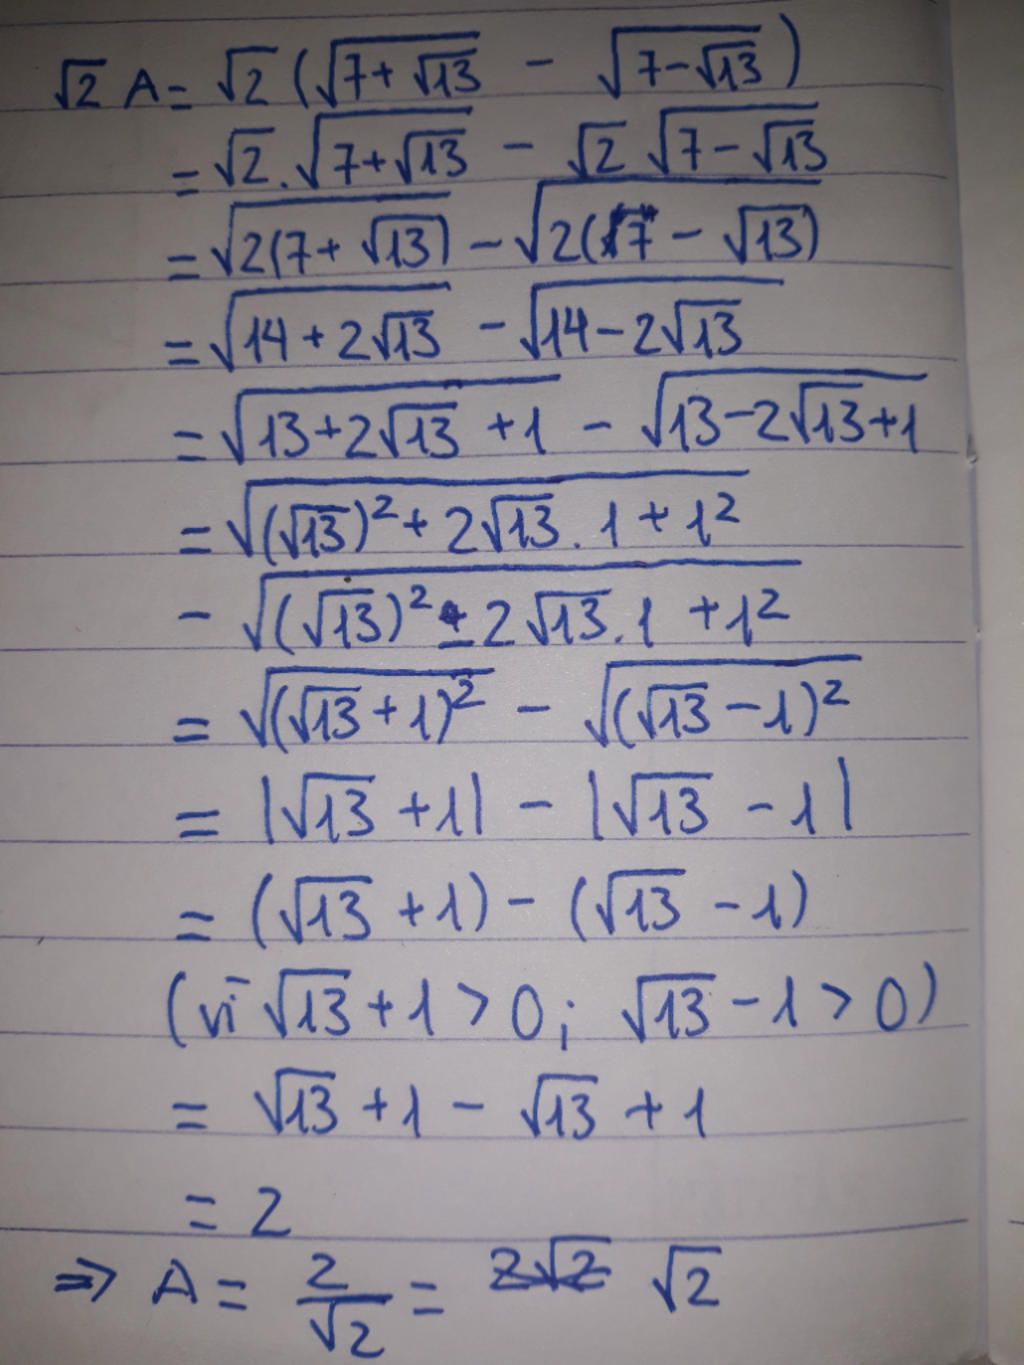 √2 A = √2 (√(7+√13) - √(7-√13))
= √2 . √(7+√13) - √2 √(7-√13)
= √(2(7+√13)) - √(2(7-√13))
= √(14+2√13) - √(14-2√13)
= √(13+2√13+1) - √(13-2√13+1)
= √((√13)²+2√13.1+1²)
- √((√13)²-2√13.1+1²)
= √((√13+1)²) - √((√13-1)²)
= |√13+1| - |√13-1|
= (√13+1) - (√13-1)
(vì √13+1>0; √13-1>0)
= √13+1-√13+1
= 2
⇒ A = 2/√2 = √2